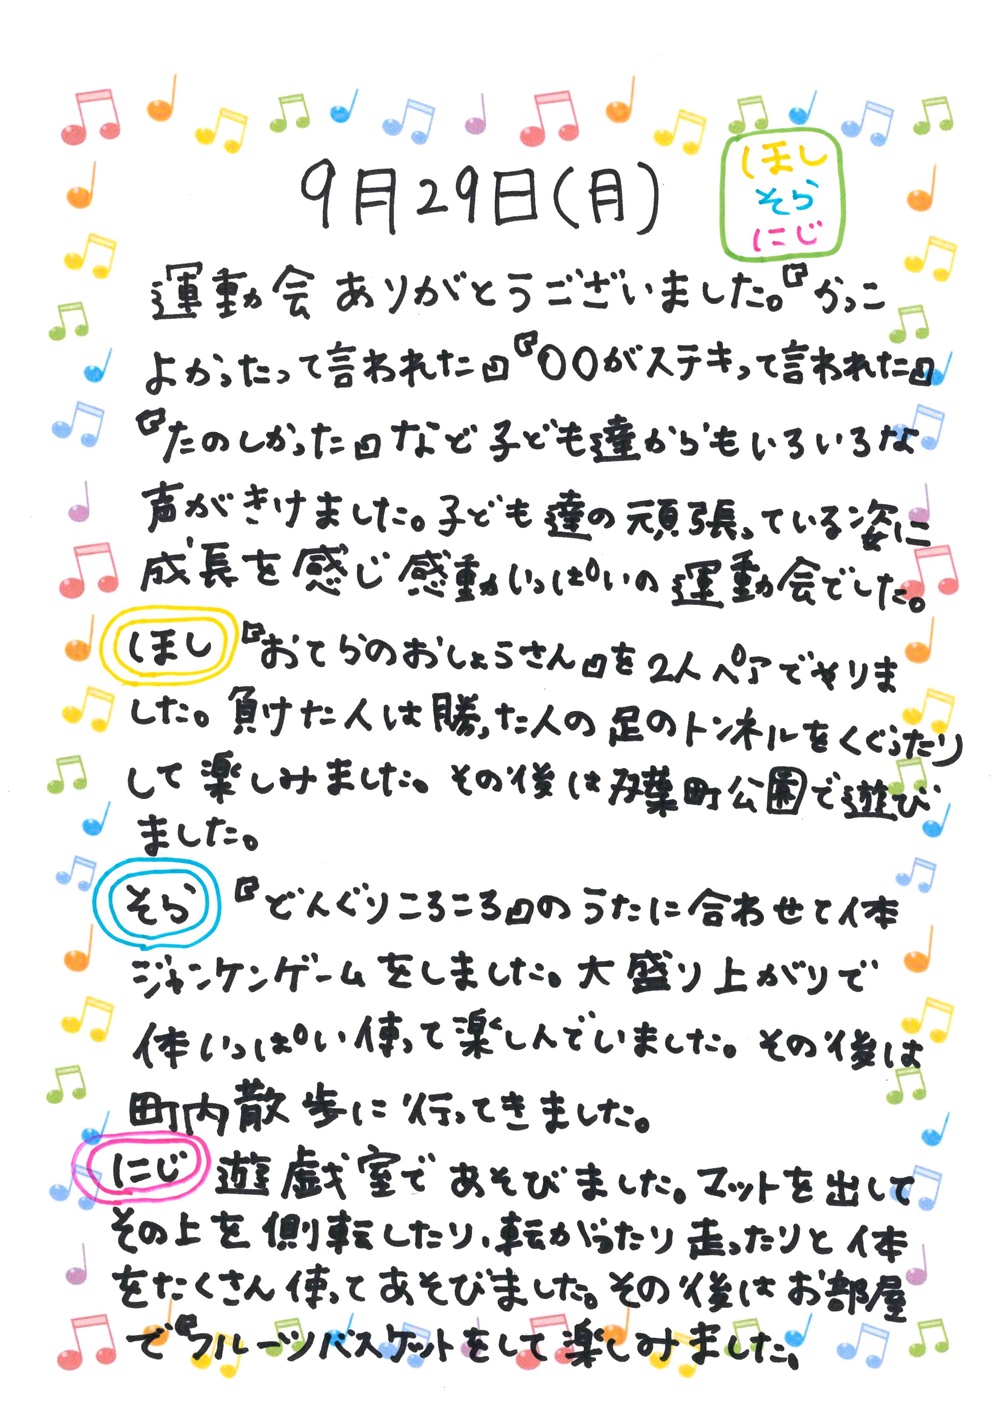 9月29日(月)
ほし
そら
にじ
運動会ありがとうございました。『かっこ
よかったって言われた』『〇〇がステキって言われた』
『たのしかった』など子ども達からもいろいろな
声がきけました。子ども達の頑張っている姿に
成長を感じ感動いっぱいの運動会でした。
ほし 『おてらのおしょうさん』を2人ペアでやりま
した。負けた人は勝った人の足のトンネルをくぐったり
して楽しみました。その後は双葉町公園で遊び
ました。
そら 『どんぐりころころ』のうたに合わせて体
ジャンケンゲームをしました。大盛り上がりで
体いっぱい使って楽しんでいました。その後は
町内散歩に行ってきました。
にじ 遊戯室であそびました。マットを出して
その上を側転したり、転がったり走ったりと体
をたくさん使ってあそびました。その後はお部屋
で『フルーツバスケットをして楽しみました。